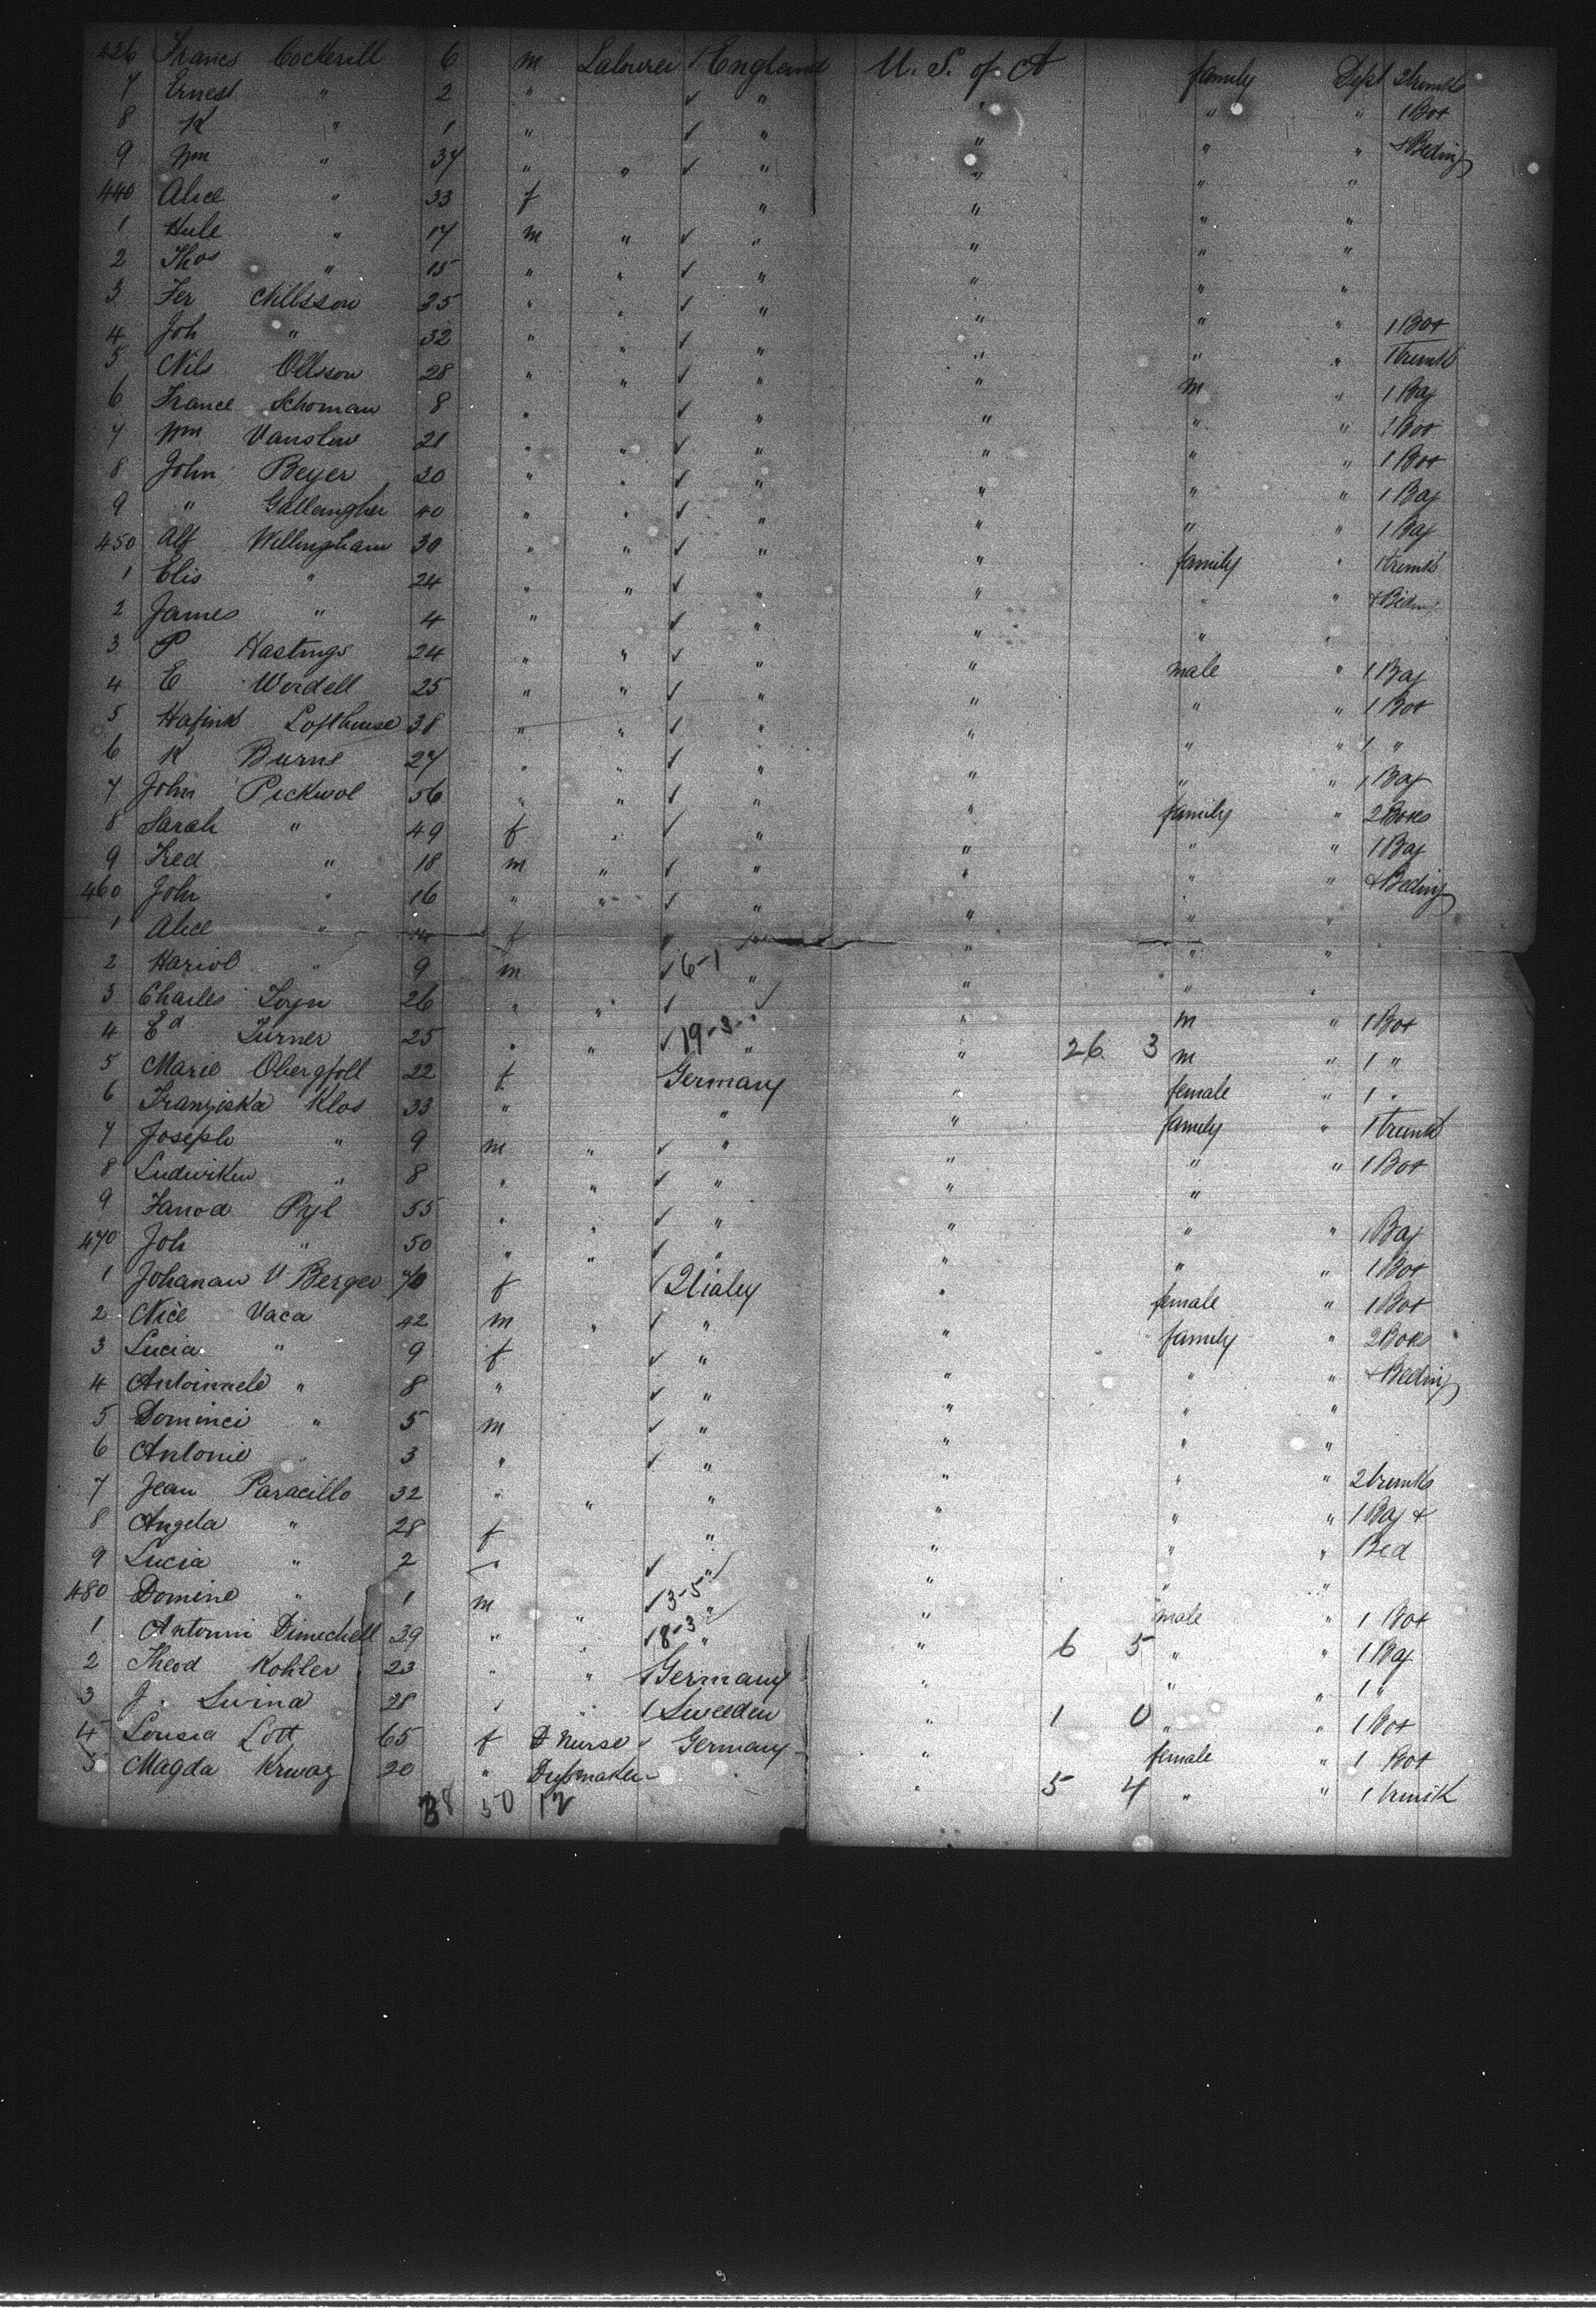 426 Francs Cockerill 6 m Labourer England U. S. of A family Dept 2 trunks
7 Ernest " 2 " " " " " 1 Box
8 K " 1 " " " " " & Beding
9 Wm " 37 " " " " " "
440 Alice " 33 f " " " "
1 Hule " 17 m " " " " "
2 Thos " 15 " " " " " "
3 Fer Nillsson 35 " " " " " " 1 Box
4 Joh " 32 " " " " " " 1 trunk
5 Nils Ollsson 28 " " " " m " 1 Bag
6 France Schoman 8 " " " " " 1 Box
7 Wm Vanslow 21 " " " " " " 1 Box
8 John Beyer 30 " " " " " " 1 Bag
9 " Gallaugher 40 " " " " " " 1 Bag
450 Alf Willingham 30 " " " " family " 1 trunk
1 Elis " 24 " " " " " " & Beding
2 James " 4 " " " " "
3 P Hastings 24 " " " " male " 1 Bag
4 E Wordell 25 " " " " " " 1 Box
5 Hafink Lofthouse 38 " " " " " " 1 "
6 K Burns 27 " " " " " " 1 Bag
7 John Peckwol 56 " " " " family " 2 Boxes
8 Sarah " 49 f " " " " " 1 Bag
9 Fred " 18 m " " " " " & Beding
460 John " 16 " " " " " "
1 Alice " 14 f " " " "
2 Hariol " 9 m 6-1 " " "
3 Charles Joyn 26 " " " " m " 1 Box
4 Ed Turner 25 " " 19-3 " " 26 3 m " 1 "
5 Marie Obergfoll 22 f Germany " female " 1 "
6 Franziska Klos 33 " " " family " 1 trunk
7 Joseph " 9 m " " " " " 1 Box
8 Ludwikw " 8 " " " " "
9 Janod Pyl 55 " " " " " " 1 Bag
470 Joh " 50 " " " " " " 1 Box
1 Johanan V Berger 70 f Itialy " female " 1 Box
2 Nice Vaca 42 m " " " family " 2 Boxes
3 Lucia " 9 f " " " " & Beding
4 Antoinnele " 8 " " " " "
5 Dominci " 5 m " " " "
6 Antonie " 3 " " " " " 2 trunks
7 Jean Paracillo 32 " " " " " " 1 Bag &
8 Angela " 28 f " " " " Bed
9 Lucia " 2 " " " "
480 Domine " 1 m 3-5 " male " 1 Box
1 Antonni Dimechell 39 " " 8-3 " " 6 5 " " 1 Bag
2 Theod Kohler 23 " " Germany " " " 1 "
3 J. Swina 28 " " Sweeden " 1 0 " " 1 Box
4 Lousia Lott 65 f Nurse Germany " female " 1 Box
5 Magda 20 " " " 5 4 " " 1 trunk
38 50 12